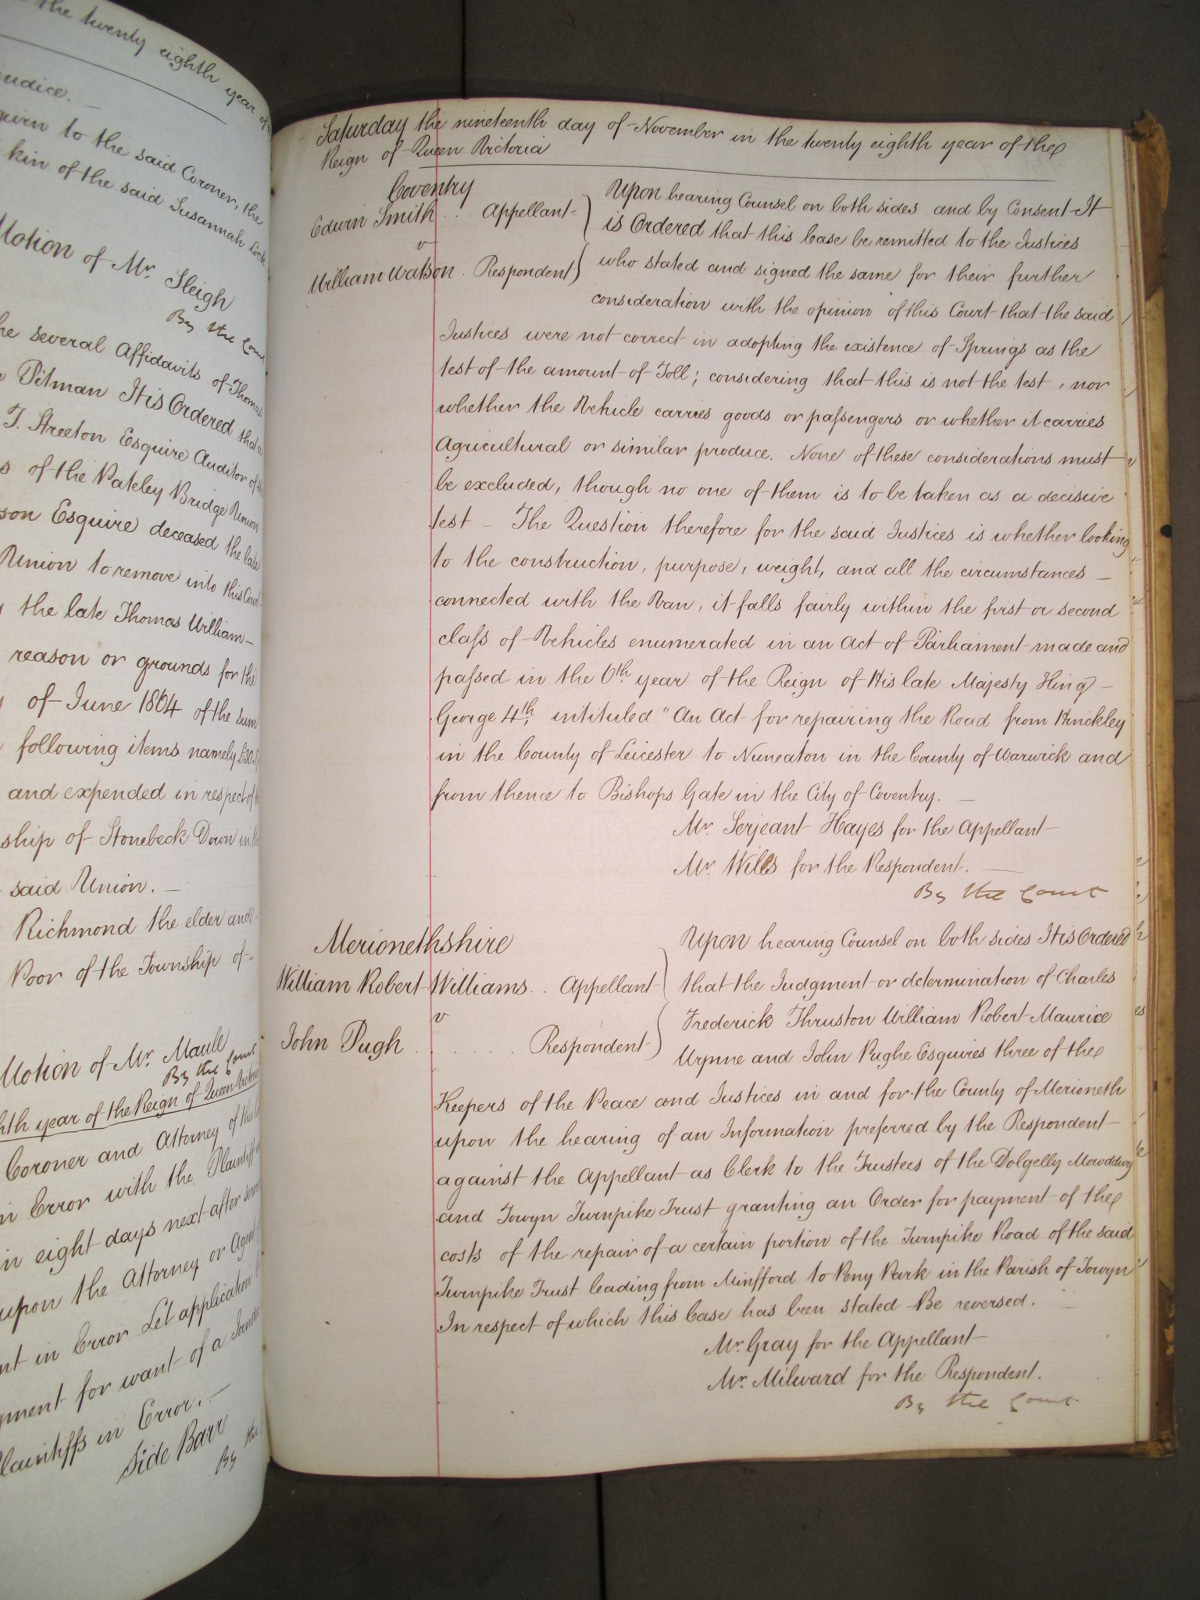 the twenty eighth year of
judice. —
given to the said Coroner, the
kin of the said Susannah
Motion of Mr. Sleigh
By the Court
he several Affidavits of Thomas
Pitman It is Ordered that
T. Streeton Esquire Auditor of the
s of the Pateley Bridge Union
son Esquire deceased the late
Union to remove into this Court
the late Thomas William—
reason or grounds for the
of June 1864 of the sum
following items namely £30.
and expended in respect of
ship of Stonebeck Down in the
said Union. —
Richmond the elder and
Poor of the Township of
Motion of Mr. Maule
By the Court
hth year of the Reign of Queen Victoria
Coroner and Attorney of the
in Error with the Plaintiff
in eight days next after
upon the Attorney or Agent
nt in Error Let application
gment for want of a Joinder
laintiffs in Error. —
Side Barr
By the
Saturday the nineteenth day of November in the twenty eighth year of the
Reign of Queen Victoria
Coventry
Edwin Smith . . Appellant
v
William Watson . Respondent
Upon hearing Counsel on both sides and by Consent It
is Ordered that this Case be remitted to the Justices
who stated and signed the same for their further
consideration with the opinion of this Court that the said
Justices were not correct in adopting the existence of Springs as the
test of the amount of Toll; considering that this is not the test, nor
whether the Vehicle carries goods or passengers or whether it carries
Agricultural or similar produce. None of these considerations must
be excluded, though no one of them is to be taken as a decisive
test — The Question therefore for the said Justices is whether looking
to the construction, purpose, weight, and all the circumstances —
connected with the Van, it falls fairly within the first or second
class of Vehicles enumerated in an Act of Parliament made and
passed in the 6th year of the Reign of His late Majesty King —
George 4th, intituled "An Act for repairing the Road from Hinckley
in the County of Leicester to Nuneaton in the County of Warwick and
from thence to Bishops Gate in the City of Coventry. —
Mr. Serjeant Hayes for the Appellant
Mr. Wills for the Respondent. —
By the Court
Merionethshire
William Robert Williams . . Appellant
v
John Pugh . . . . Respondent
Upon hearing Counsel on both sides It is Ordered
that the Judgment or determination of Charles
Frederick Thruston William Robert Maurice
Wynne and John Pughe Esquires three of the
Keepers of the Peace and Justices in and for the County of Merioneth
upon the hearing of an Information preferred by the Respondent
against the Appellant as Clerk to the Trustees of the Dolgelly Mowddwy
and Towyn Turnpike Trust granting an Order for payment of the
costs of the repair of a certain portion of the Turnpike Road of the said
Turnpike Trust leading from Minfford to Peny Park in the Parish of Towyn
In respect of which this Case has been stated Be reversed. —
Mr. Gray for the Appellant
Mr. Milward for the Respondent.
By the Court